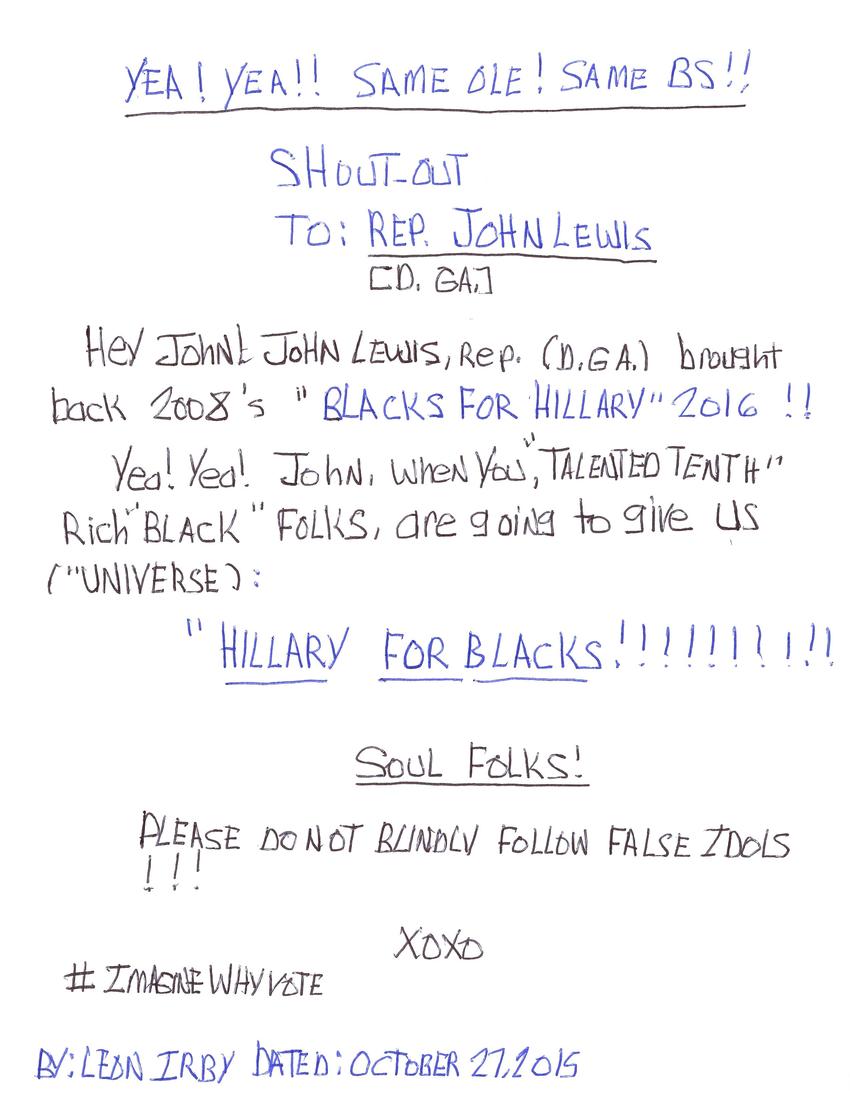 YEA! YEA!! SAME OLE! SAME BS!!
SHOUT-OUT
TO: REP. JOHN LEWIS
[D. GA.]
Hey JOHN! JOHN LEWIS, Rep. (D.GA.) brought
back 2008's "BLACKS FOR HILLARY" 2016 !!
Yea! Yea! John, when you, "TALENTED TENTH"
Rich "BLACK" FOLKS, are going to give US
("UNIVERSE):
"HILLARY FOR BLACKS!!!!!!!!!!
SOUL FOLKS!
PLEASE DO NOT BLINDLY FOLLOW FALSE IDOLS
!!!
XOXO
# IMAGINEWHYVOTE
BY: LEON IRBY DATED: OCTOBER 27, 2015